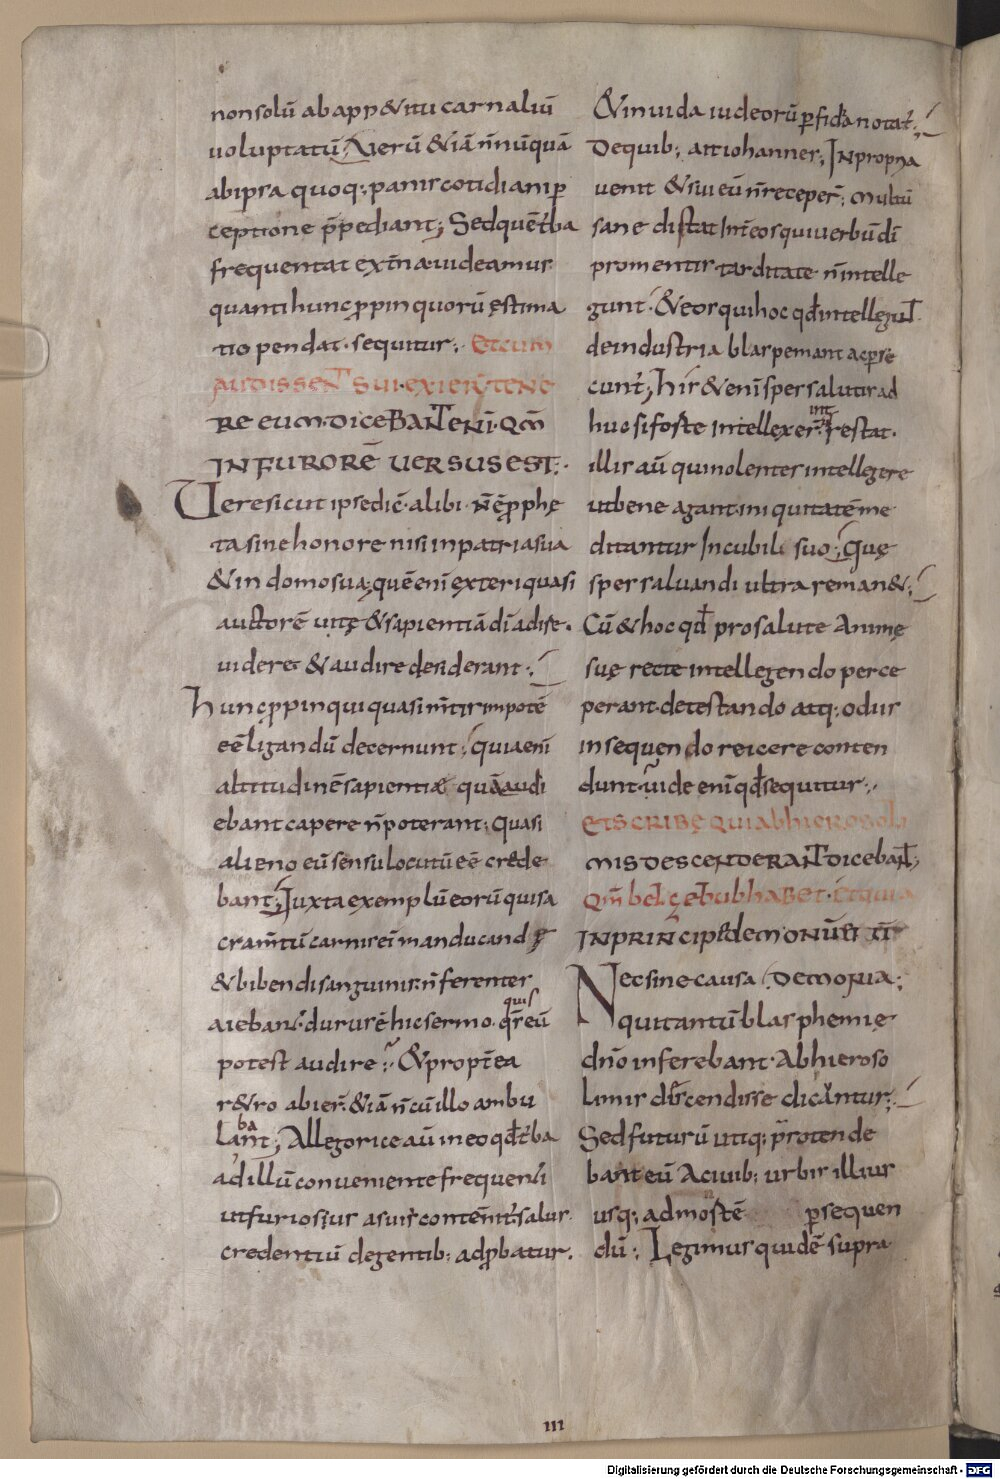 nonsolū ab app&itu carnaliū
uoluptatū; Uerū &iā n̄nūquā
abipsa quoq; panis cotidiani p
ceptione p̄pediant; Sed quē t̄ba
frequentat ext̄na uideamus
quanti hunc ꝓpinquorū ęstima
tio pendat· sequitur; Et cum
AUDISSENT SUI· EXIERT TENE
RE EUM· DICEBANT ENI· QM̄
IN FURORĒ UERSUS EST;
Uere sicut ipse dic̄· alibi· N̄ ē ꝓphę
ta sine honore nisi in patria sua
& in domo sua; quē eni exteri quasi
auctorē uitę & sapientiā dī adisse·
uidere & audire desiderant;
Hunc ꝓpinqui quasi m̄tis impotē
eē ligandū decernunt; quia eni
altitudinē sapientiæ quā audi
ebant capere n̄ poterant; quasi
alieno eū sensu locutū eē crede
bant; Juxta exemplū eorū qui sa
cram̄tū carnis eī manducandę
& bibendi sanguinis· n̄ ferentes
aiebant· durus ē hic sermo· quis
qs eū
potest audire; & propt̄ea
r&ro abier̄· & iā n̄ cū illo ambu
ba
lant; Allegorice aū in eo qđ t̄ba
ad illū conueniente frequenti
ut furiosus a suis contēnit̄· salus
credentiū de gentib; adꝓbatur·
& inuida iudeorū ꝑfidia notat̄;
De quib; ait iohannes; IN propria
uenit & sui eū n̄ receper̄; Multū
sane distat int̄ eos qui uerbū dī
pro mentis tarditate n̄ intelle
gunt· & eos qui hoc qđ intellegūt
de industria blasphemant ac ꝑse
cunt̄; his & eni spes salutis ad
int
huc si foste intellexer̄ restat·
illis aū qui nolentes intellegere
ut bene agant· iniquitatē me
ditantur In cubili suo; Quę
spes saluandi ultra reman&;
Cū & hoc qđ pro salute Animę
suę recte intellegendo perce
perant· detestando atq; odus
insequendo reicere conten
dunt· uide eni qđ sequitur;
ET SCRIBĘ QUI AB HIEROSOLI
MIS DESCENDERANT DICEBANT;
QM̄ beelzebub HABET· ET QUIA
IN PRINCIPE DEMONŪ EI
Nec sine causa De
qui tantū blasphemię
dn̄o inferebant· Ab hieroso
limis descendisse dicuntur;
Sed futurū utiq; p̄rotende
bant eū A ciuib; urbis illius
usq; ad mortē ꝑsequen
dū; Legimus quidē supra
III
Digitalisierung gefördert durch die Deutsche Forschungsgemeinschaft · DFG